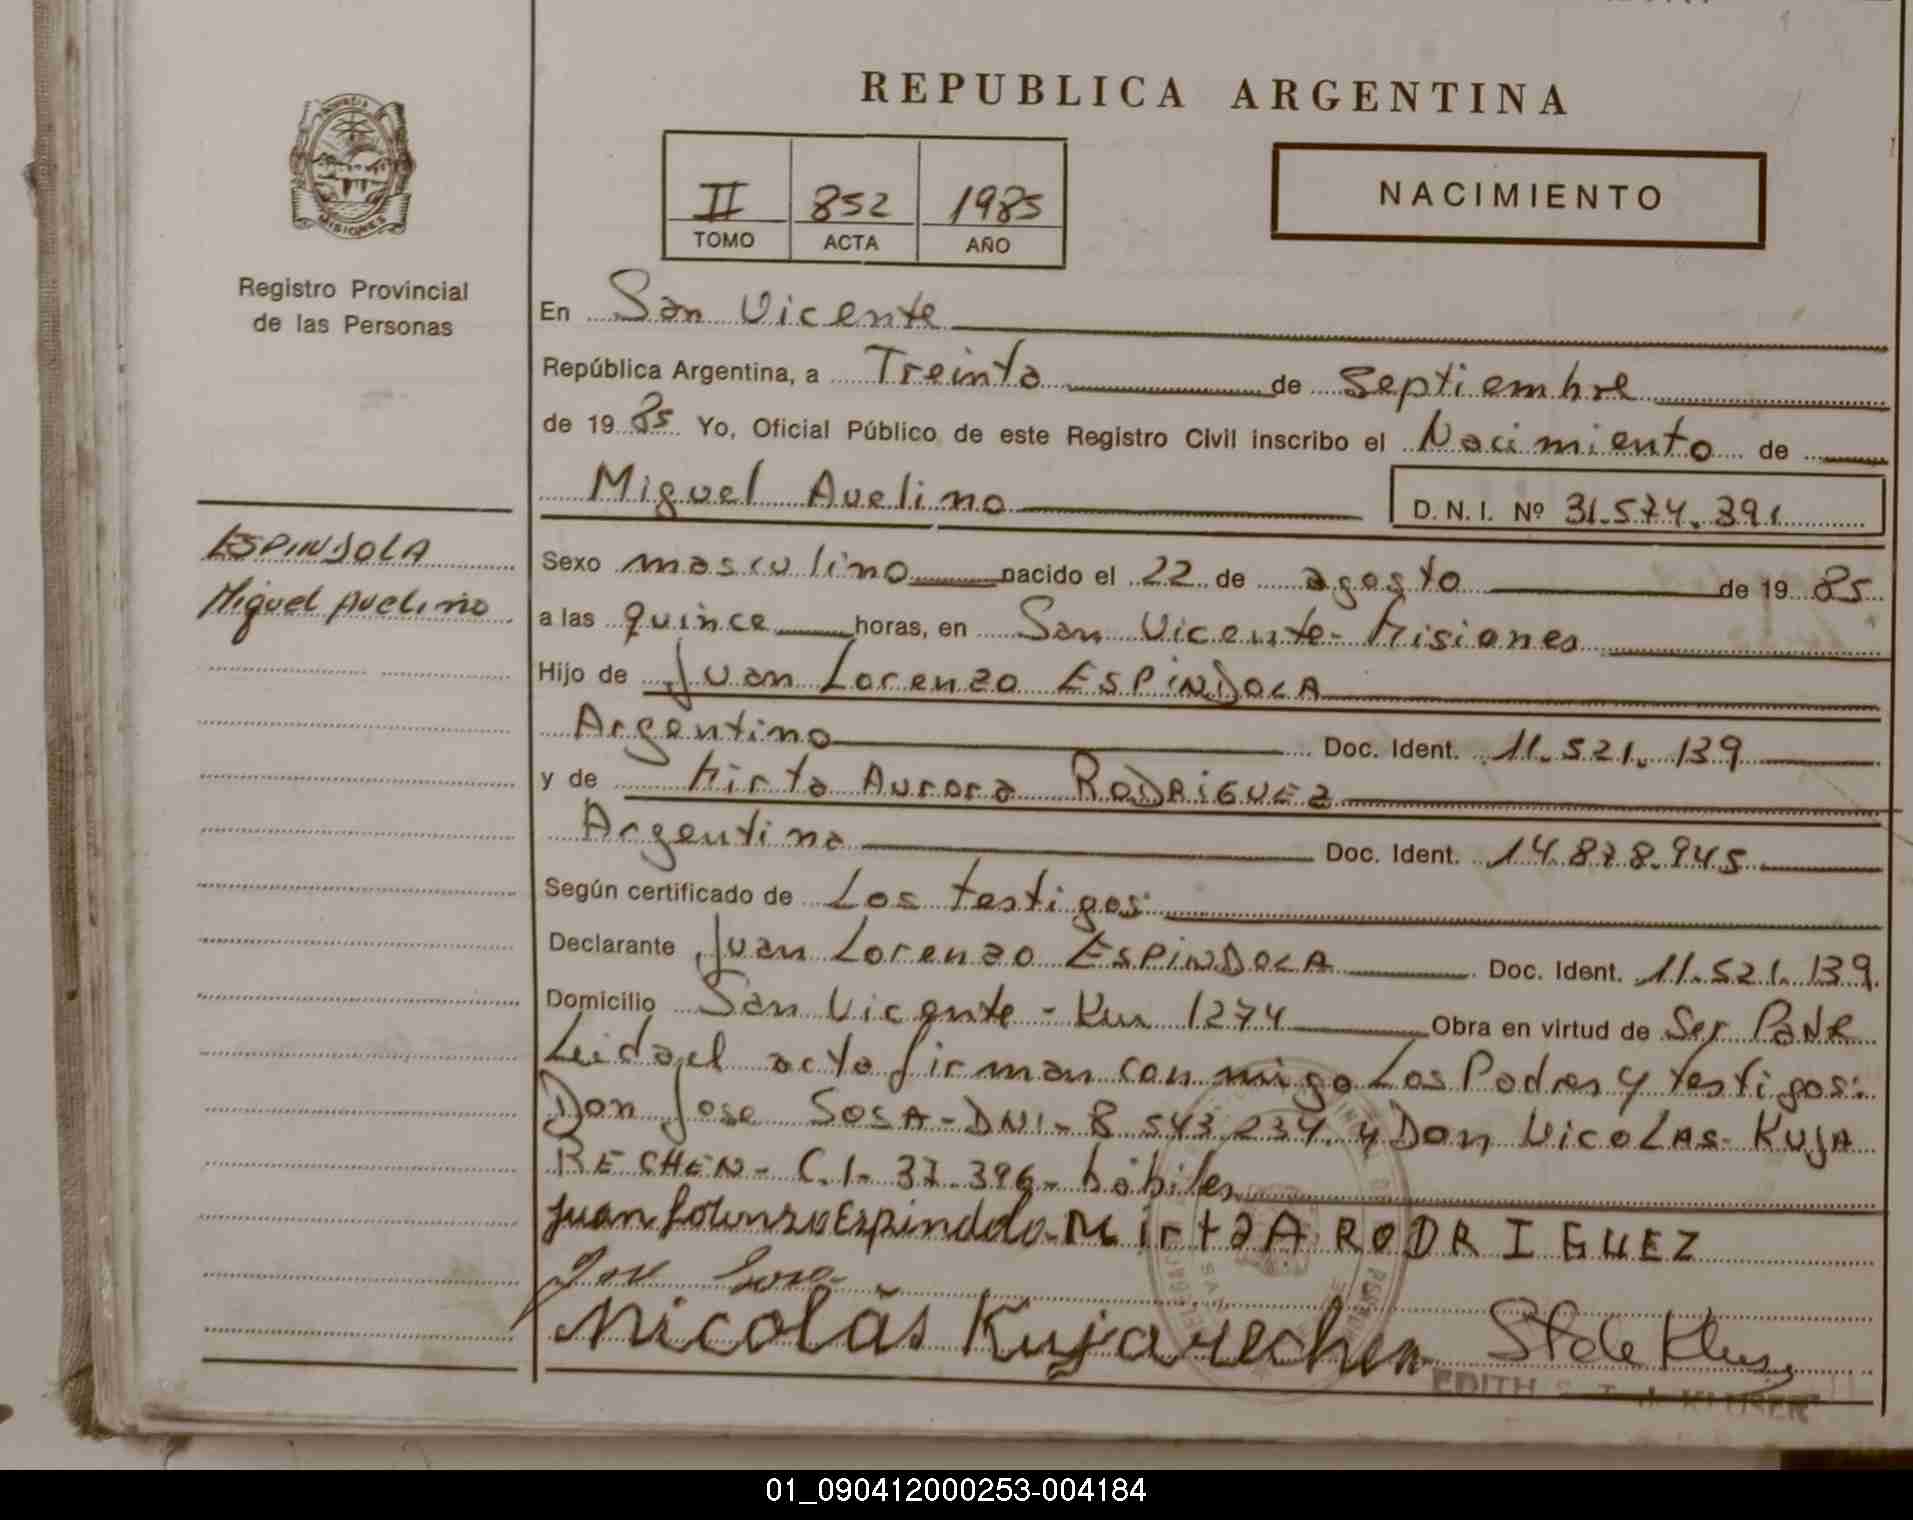 REPUBLICA ARGENTINA
II 852 1985
TOMO ACTA AÑO
NACIMIENTO
MISIONES
Registro Provincial
de las Personas
ESPINDOLA
Miguel Avelino
En San Vicente
República Argentina, a Treinta de Septiembre
de 1985 Yo, Oficial Público de este Registro Civil inscribo el Nacimiento de
Miguel Avelino D.N.I. Nº 31.574.391
Sexo masculino nacido el 22 de agosto de 1985
a las quince horas, en San Vicente - Misiones
Hijo de Juan Lorenzo ESPINDOLA
Argentino Doc. Ident. 11.521.139
y de Mirta Aurora RODRIGUEZ
Argentina Doc. Ident. 14.878.945
Según certificado de Los testigos
Declarante Juan Lorenzo ESPINDOLA Doc. Ident. 11.521.139
Domicilio San Vicente - Km 1274 Obra en virtud de Ser PADRE
Leida el acta firman conmigo Los Padres y testigos:
Don Jose SOSA - DNI - 8.543.234. y Don NicoLAS KUJA
RECHEN - C.I. 37.396 - hábiles
Juan Lorenzo Espindola - Mirta A RODRIGUEZ
Jose Sosa
Nicolás Kujarechen
EDITH S. T. de KLUSER
01_090412000253-004184